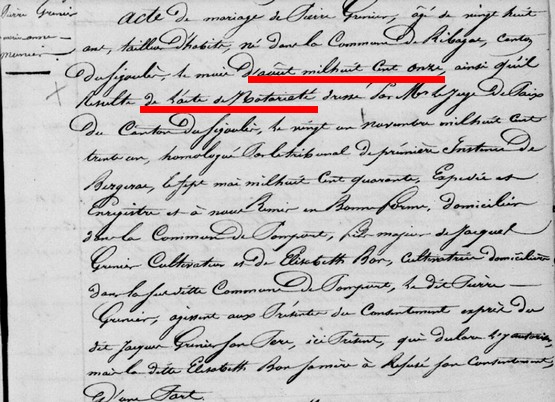 Pierre Grenier
marianne
Meunier
acte de mariage de Pierre Grenier, âgé de vingt huit
ans, tailleur d'habits, né dans la Commune de Ribagnac, canton
de Sigoulès, le mois d'août mil huit cent onze, ainsi qu'il
Résulte de l'acte de Notoriété dressé par Mr le Juge de Paix
du Canton de Sigoulès, le vingt un novembre mil huit cent
trente un, homologué par le tribunal de première Instance de
Bergerac, le sept mai mil huit cent quarante, Expédié et
Enregistré et à nous Remis en Bonne forme, domicilié
dans la Commune de Pomport, fils majeur de Jacques
Grenier Cultivateur et de Elisabeth Bon, cultivatrice domiciliés
dans la susditte Commune de Pomport, le dit Pierre
Grenier, agissant aux Présentes du Consentement exprès du
dit Jacques Grenier son Père, ici Présent, qui déclare l'y autoriser,
mais la ditte Elisabeth Bon sa mère à Refusé son Consentement,
D'une Part.